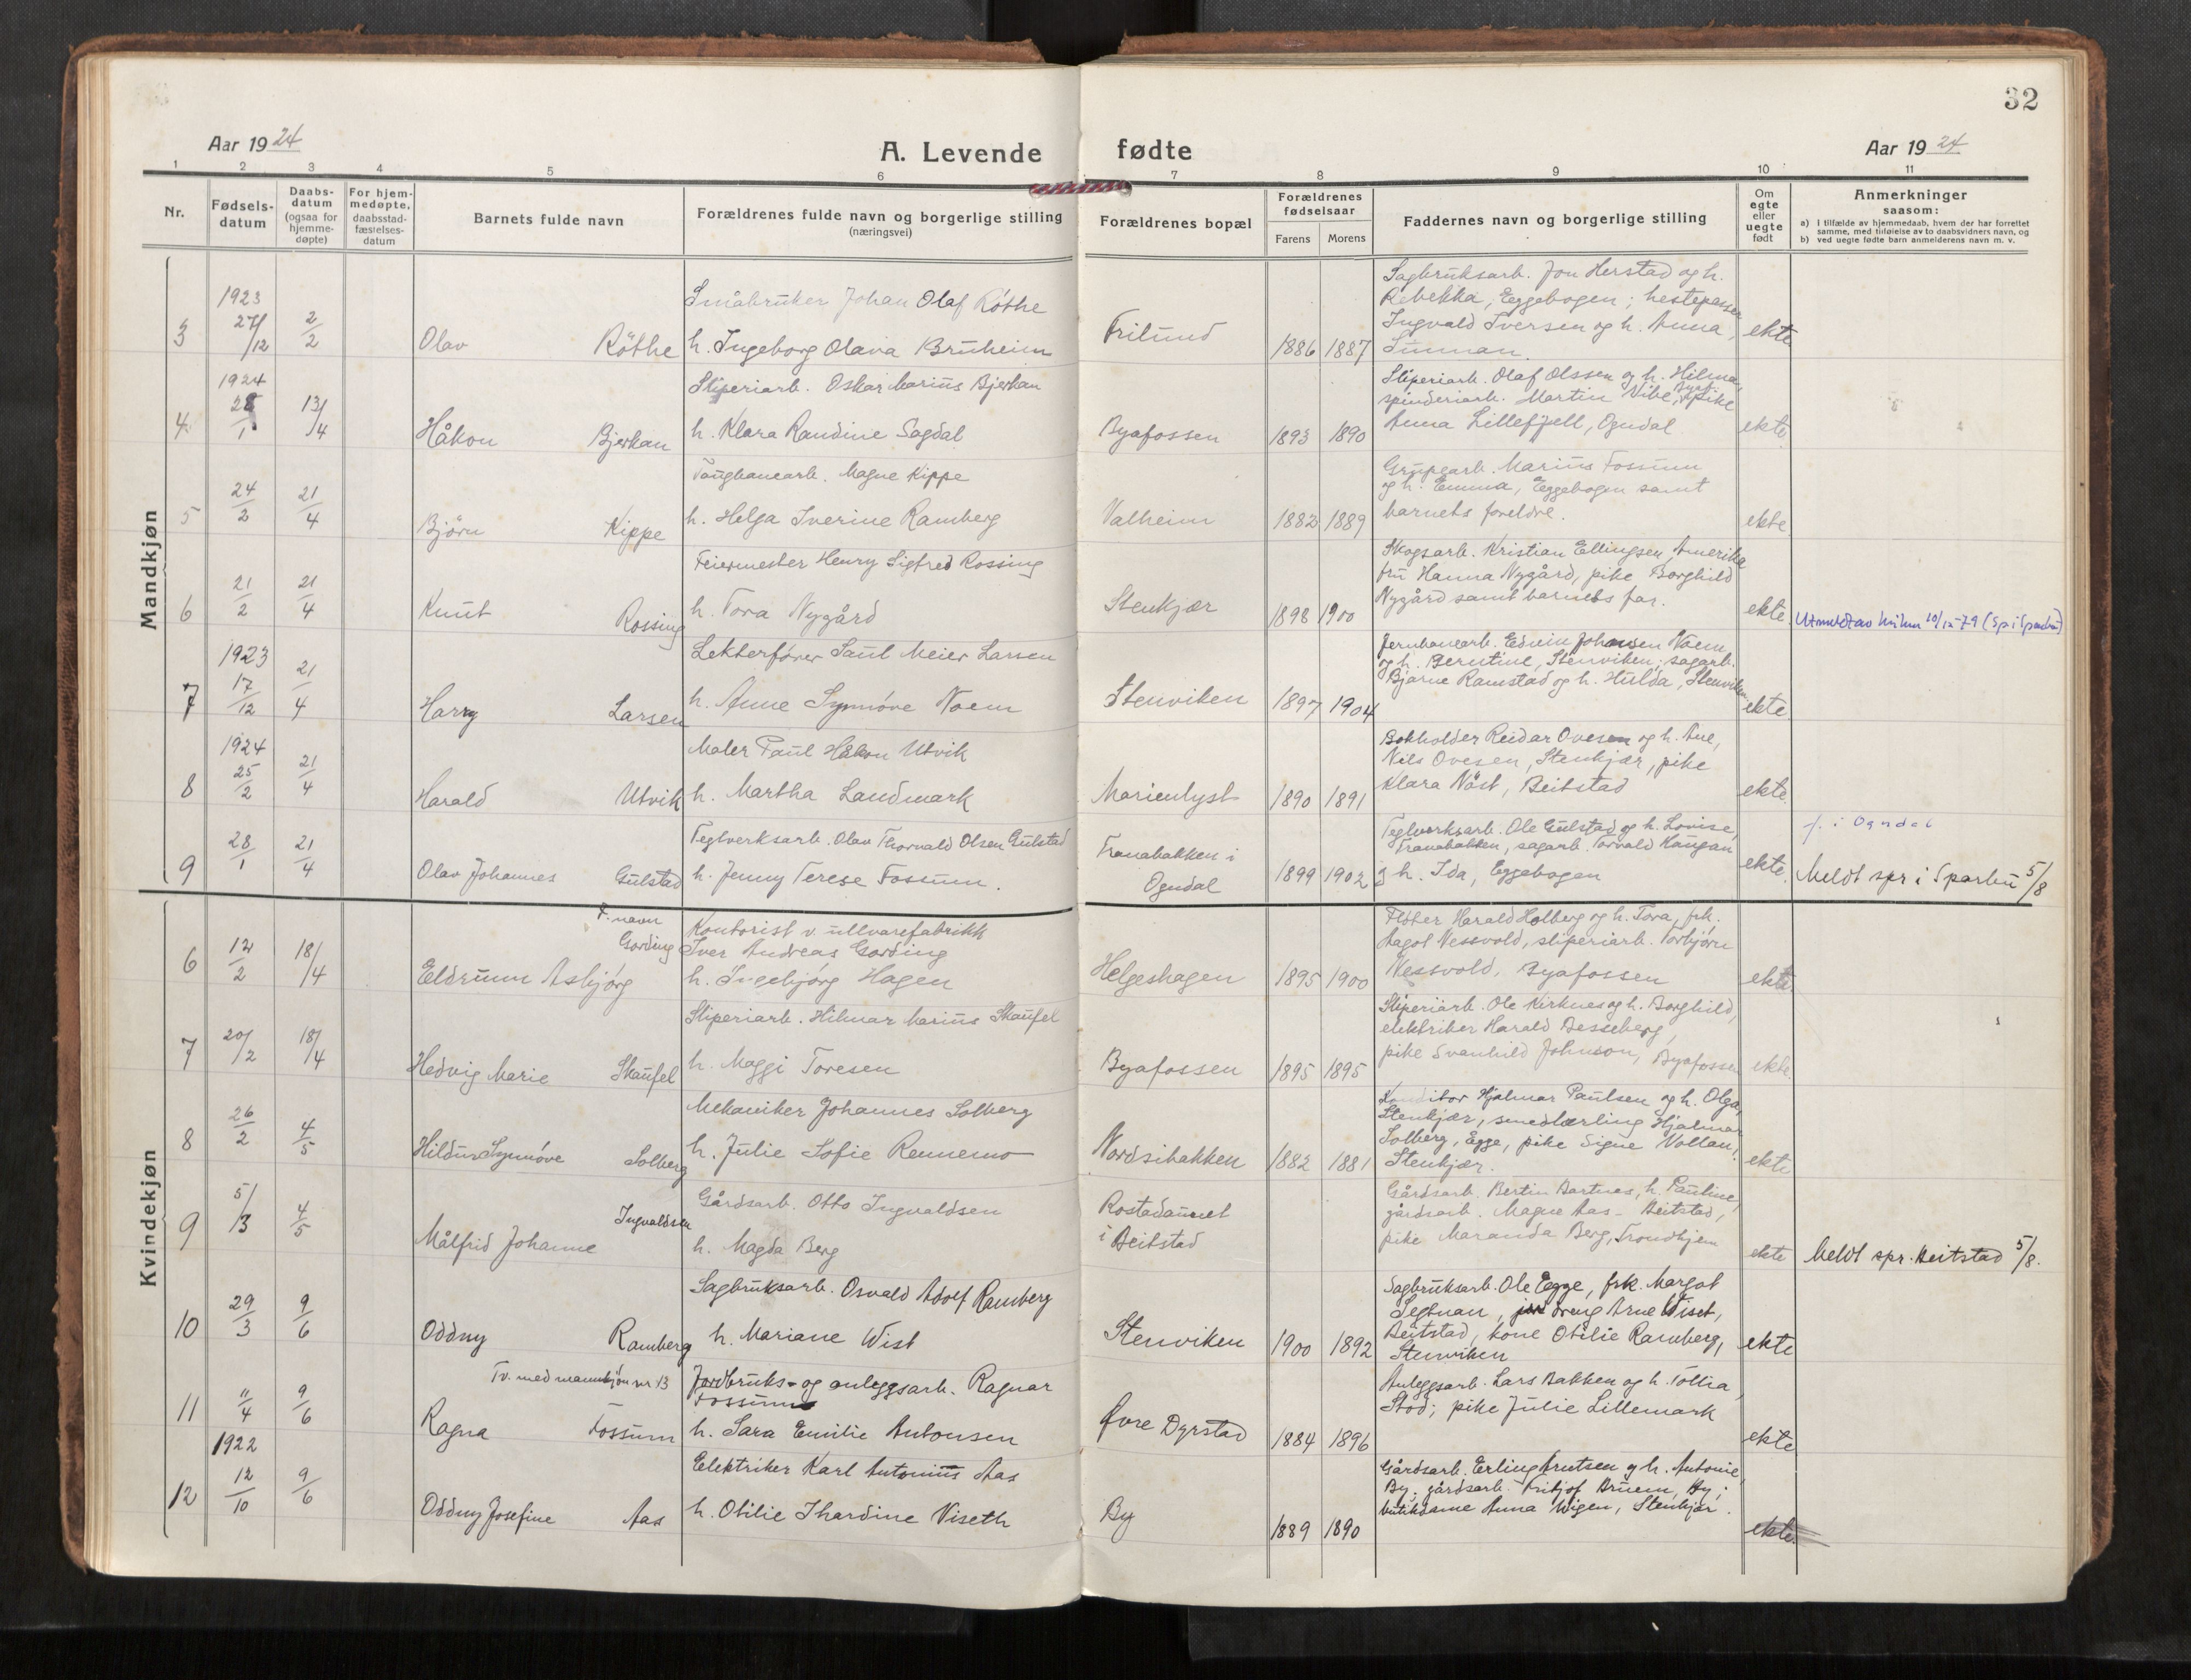 32
Aar 1924
A. Levende fødte
Aar 1924
1 2 3 4 5 6 7 8 9 10 11
Nr.
Fødsels-datum
Daabs-datum (ogsaa for hjemme-døpte)
For hjem-medøpte, daabsstad-fæstelses-datum
Barnets fulde navn
Forældrenes fulde navn og borgerlige stilling
(næringsvei)
Forældrenes bopæl
Forældrenes fødselsaar
Farens Morens
Faddernes navn og borgerlige stilling
Om egte eller uegte født
Anmerkninger
saasom:
a) i tilfælde av hjemmedaab, hvem der har forrettet
samme, med tilføielse av to daabsvidners navn, og
b) ved uegte fødte barn anmelderens navn m. v.
Mandkjøn
3
1923
27/12
2/2
Olav Röthe
Småbruker Johan Olaf Röthe
h. Ingeborg Olava Bruheim
Frilund
1886 1887
Sagbruksarb. Jon Herstad og h.
Rebekka, Eggebogen; hestepasser
Ingvald Iversen og h. Anna,
Sunnan.
ekte
4
1924
28/1
13/4
Håkon Bjerkan
Sliperiarb. Oskar Marius Bjerkan
h. Klara Randine Sagdal
Byafossen
1893 1890
Sliperiarb. Olaf Olssen og h. Hilma,
spinderiarb. Martin Vibe, pike
Anna Lillefjell, Ogndal
ekte
5
24/2
21/4
Björn Kippe
Taugbanearb. Magne Kippe
h. Helga Iverine Ramberg
Valheim
1882 1889
Grubearb. Marius Fossum
og h. Emma, Eggebogen samt
barnets foreldre.
ekte
6
21/2
21/4
Knut Rossing
Feiermester Henry Sigfred Rossing
h. Tora Nygård
Stenkjær
1898 1900
Skogsarb. Kristian Ellingsen, Amerika
fru Hanna Nygård, pike Borghild
Nygård samt barnets far.
ekte
Utmeldt av kirken 10/12-79
7
1923
17/12
21/4
Harry Larsen
Lekterfører Saul Meier Larsen
h. Anne Synnöve Noem
Stenviken
1897 1904
Jernbanearb. Edvin Johansen Noem
og h. Berntine, Stenviken; sagarb.
Bjarne Ramstad og h. Hulda, Stenviken
ekte
8
1924
25/2
21/4
Harald Utvik
Maler Paul Håkon Utvik
h. Martha Landmark
Marienlyst
1890 1891
Bokholder Reidar Ovesen og h. Ane,
Nils Ovesen, Stenkjær, pike
Klara Nöst, Beitstad
ekte.
9
28/1
21/4
Olav Johannes Gulstad
Teglverksarb. Olav Thorvald Olsen Gulstad
h. Jenny Terese Fossum.
Tranabakken i
Ogndal
1899 1902
Teglverksarb. Ole Gulstad og h. Lovise,
Tranabakken, sagarb. Torvald Haugan
og h. Ida, Eggebogen
ekte.
f. i Ogndal
Meldt spr i Sparbu 5/8
Kvindekjøn
6
12/2
18/4
F. navn
Gording
Eldrunn Asbjörg
Kontorist v. ullvarefabrikk
Iver Andreas Gording
h. Ingebjörg Hagen
Helgeshagen
1895 1900
Fløter Harald Holberg og h. Tora, frk.
Aagot Nessvold, sliperiarb. Torbjörn
Nessvold, Byafossen
ekte
7
20/2
18/4
Hedvig Marie Skaufel
Sliperiarb. Hilmar Marius Skaufel
h. Maggi Toresen
Byafossen
1895 1895
Sliperiarb. Ole Kirknes og h. Borghild,
elektriker Harald Besseberg,
pike Svanhild Johnson, Byafossen
ekte.
8
26/2
4/5
Hildur Synnöve Solberg
Mekaniker Johannes Solberg
h. Julie Sofie Rennemo
Nordsibakken
1882 1881
Konditor Hjalmar Paulsen og h. Olga,
Stenkjær, smedlærling Hjalmar
Solberg, Egge, pike Signe Vollan,
Stenkjær.
ekte
9
5/3
4/5
Målfrid Johanne Ingvaldsen
Gårdsarb. Otto Ingvaldsen
h. Magda Berg
Rostadaunet
i Beitstad
Gårdsarb. Bertin Bartnes, h. Pauline,
gårdsarb. Magne Aas - Beitstad,
pike Maranda Berg, Trondhjem
ekte
Meldt spr. Beitstad 5/8.
10
29/3
9/6
Oddny Ramberg
Sagbruksarb. Osvald Adolf Ramberg
h. Mariane Wist
Stenviken
1900 1892
Sagbruksarb. Ole Egge, frk. Margot
Segtnan, dreng Arne Wiset,
Beitstad, kone Otilie Ramberg,
Stenviken
ekte
11
11/4
9/6
Tv. med mannkjön nr 13
Ragna Fossum
Jordbruks- og anleggsarb. Ragnar
Fossum
h. Sara Emilie Antonsen
Øvre Dyrstad
1884 1896
Anleggsarb. Lars Bakken og h. Tollia,
Stod; pike Julie Lillemark
ekte
12
1922
12/10
9/6
Oddny Josefine Aas
Elektriker Karl Antonius Aas
h. Otilie Thardine Viseth
By
1889 1890
Gårdsarb. Erling Arntsen og h. Antonie,
By; gårdsarb. Fritjof Bruem, By;
butikdame Anna Wigen, Stenkjær.
ekte.